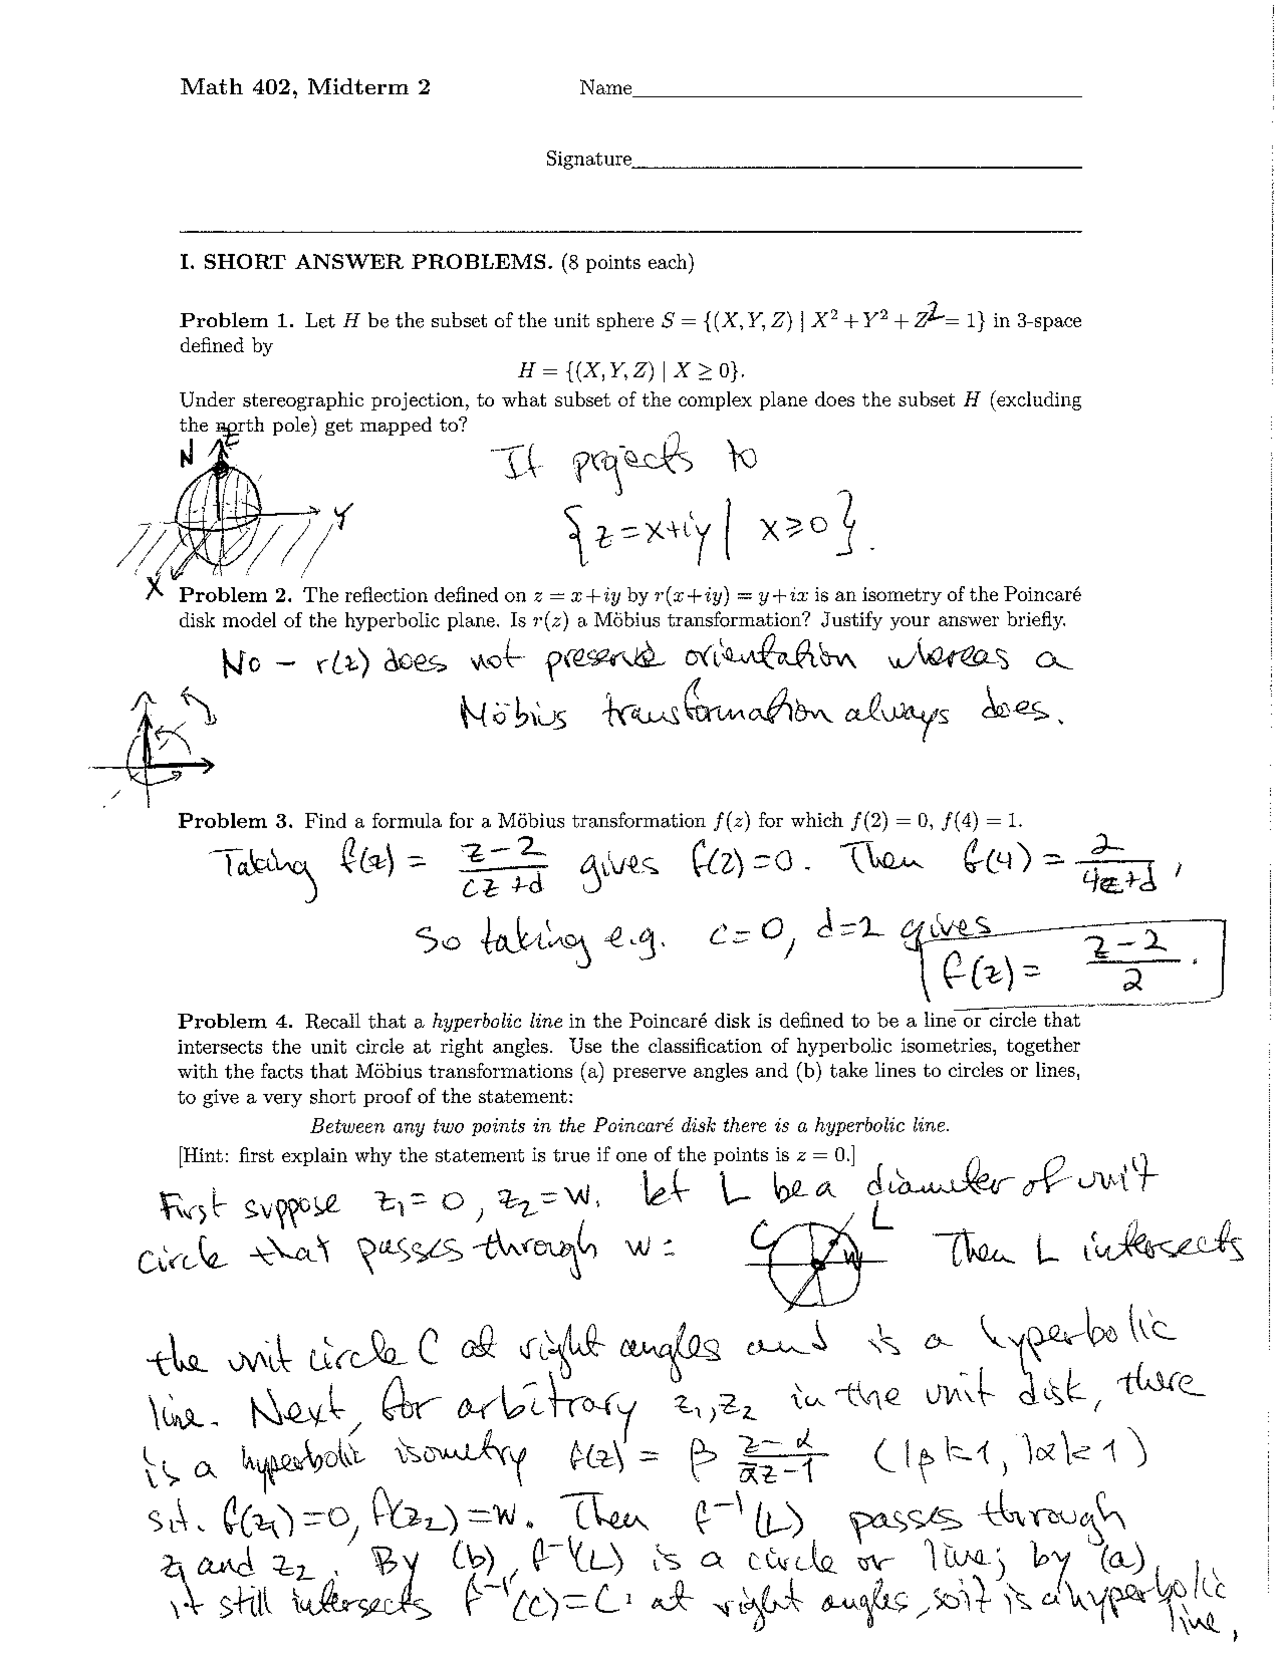 Math 402, Midterm 2 Name
Signature
I. SHORT ANSWER PROBLEMS. (8 points each)
Problem 1. Let H be the subset of the unit sphere S = {(X, Y, Z) | X² + Y² + Z² = 1} in 3-space
defined by
H = {(X, Y, Z) | X ≥ 0}.
Under stereographic projection, to what subset of the complex plane does the subset H (excluding
the north pole) get mapped to?
Z
N
It projects to
Y
{z = x+iy | x ≥ 0}.
X
Problem 2. The reflection defined on z = x+iy by r(x+iy) = y+ix is an isometry of the Poincaré
disk model of the hyperbolic plane. Is r(z) a Möbius transformation? Justify your answer briefly.
No – r(z) does not preserve orientation whereas a
Möbius transformation always does.
Problem 3. Find a formula for a Möbius transformation f(z) for which f(2) = 0, f(4) = 1.
Taking f(z) = (z-2)/(cz+d) gives f(2)=0. Then f(4) = 2/(4c+d),
so taking e.g. c=0, d=2 gives
f(z) = (z-2)/2.
Problem 4. Recall that a hyperbolic line in the Poincaré disk is defined to be a line or circle that
intersects the unit circle at right angles. Use the classification of hyperbolic isometries, together
with the facts that Möbius transformations (a) preserve angles and (b) take lines to circles or lines,
to give a very short proof of the statement:
Between any two points in the Poincaré disk there is a hyperbolic line.
[Hint: first explain why the statement is true if one of the points is z = 0.]
First suppose z₁=0, z₂=w. Let L be a diameter of unit
circle that passes through w: C L w Then L intersects
the unit circle C at right angles and is a hyperbolic
line. Next, for arbitrary z₁,z₂ in the unit disk, there
is a hyperbolic isometry f(z) = β (z-α)/(ᾱz-1) (|β|=1, |α|<1)
s.t. f(z₁)=0, f(z₂)=w. Then f⁻¹(L) passes through
z₁ and z₂. By (b), f⁻¹(L) is a circle or line; by (a),
it still intersects f⁻¹(C)=C at right angles, so it is a hyperbolic
line.